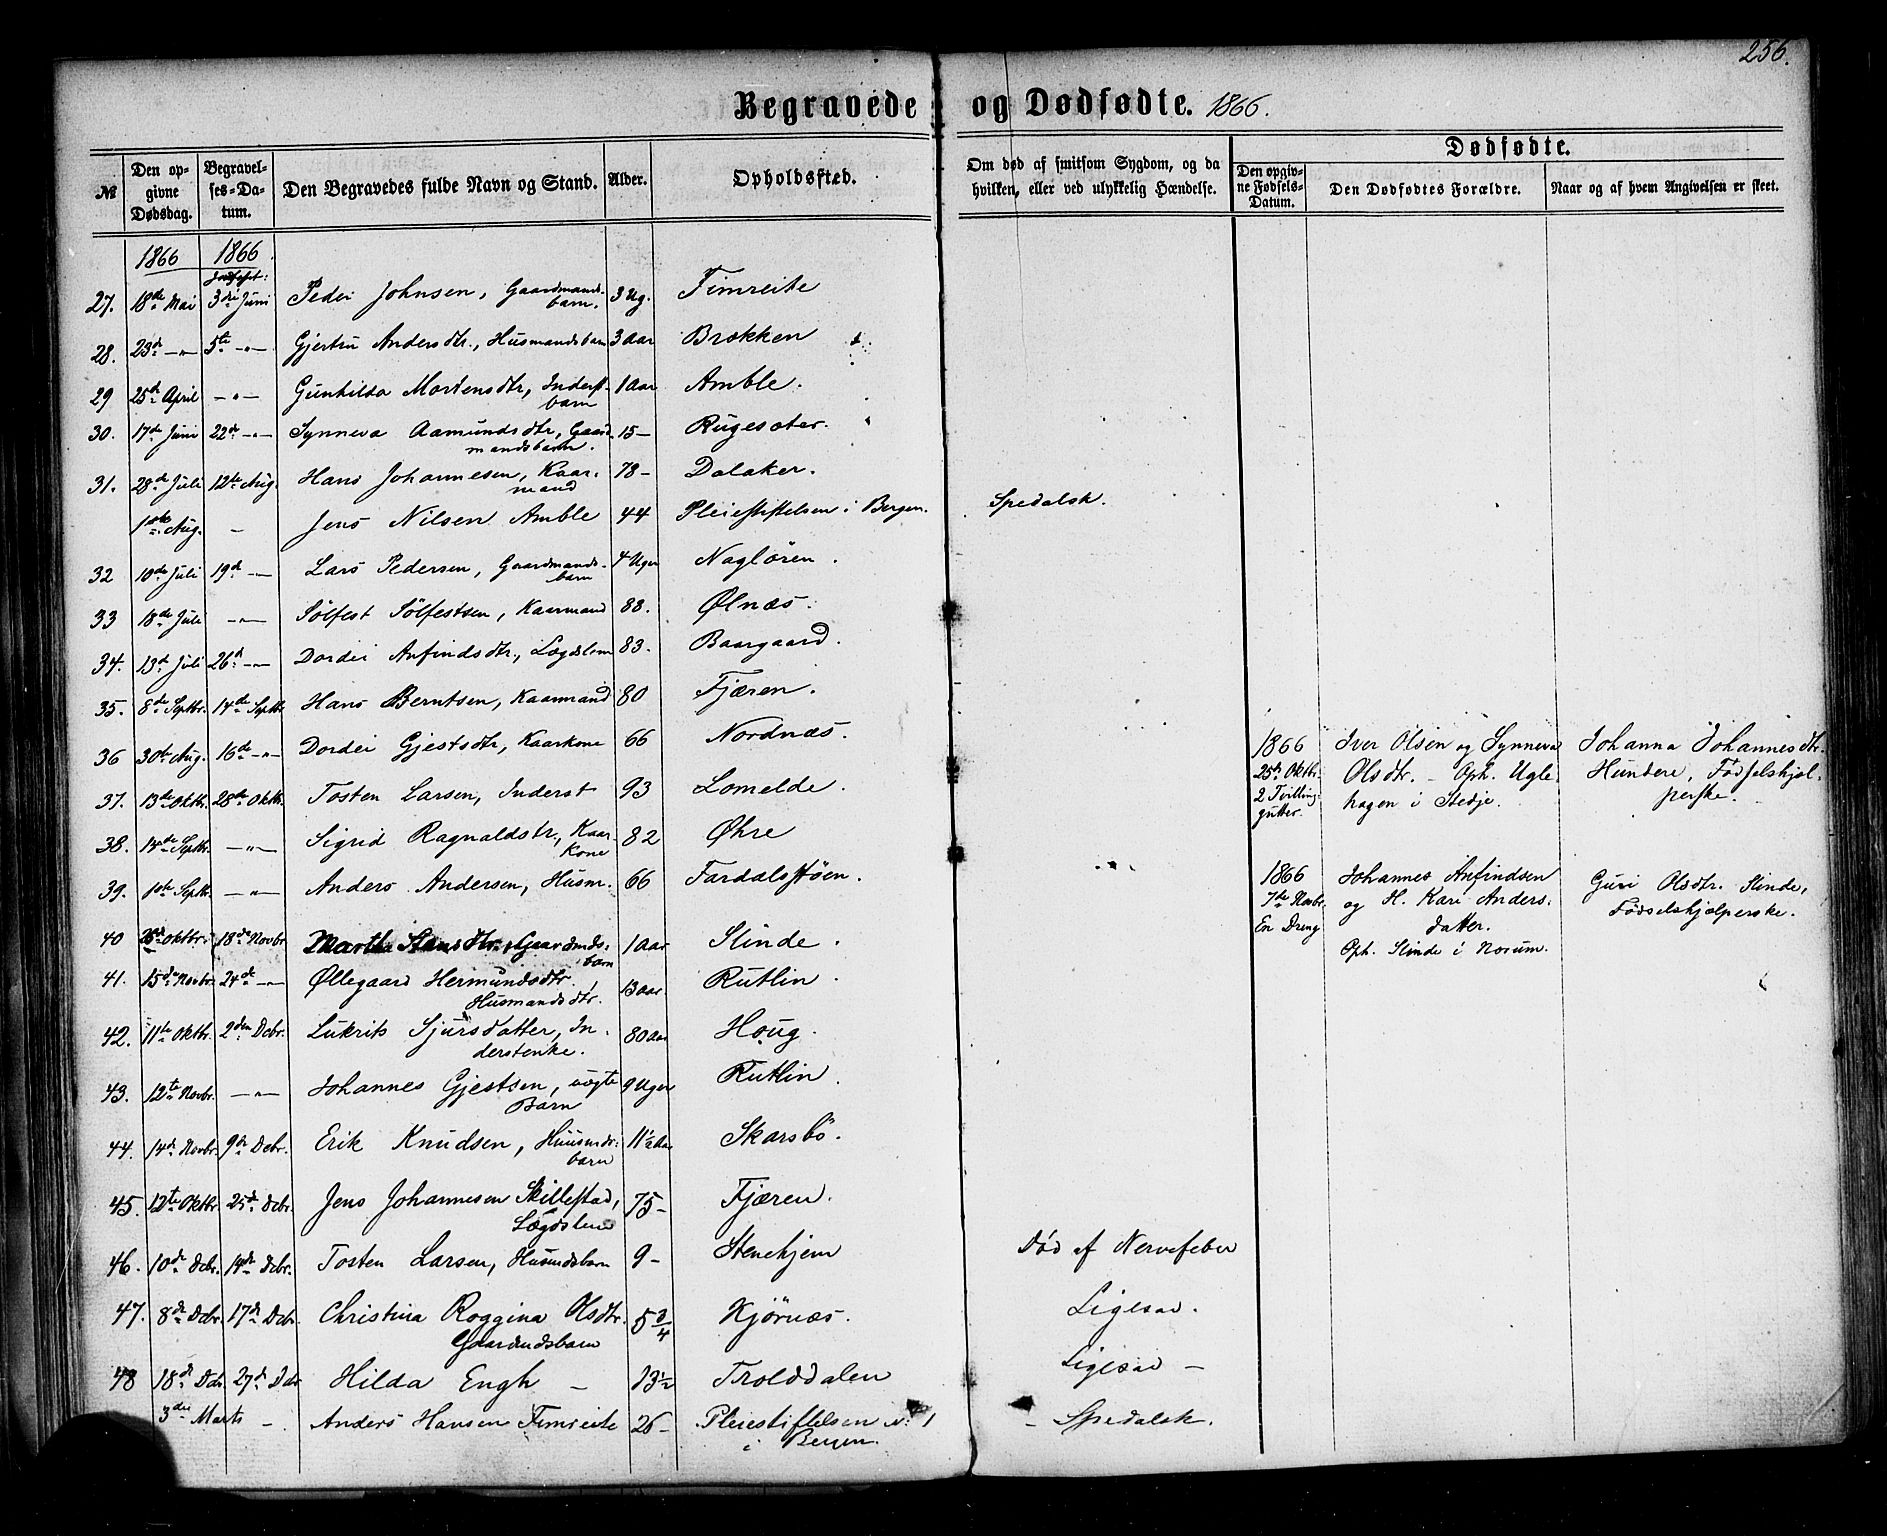 256.
Begravede og Dødfødte. 1866.
№ Den opgivne Dødsdag. Begravelses-Datum. Den Begravedes fulde Navn og Stand. Alder. Opholdssted. Om død af smitsom Sygdom, og da hvilken, eller ved ulykkelig Hændelse. Dødfødte. Den opgivne Fødsels-Datum. Den Dødfødtes Forældre. Naar og af hvem Angivelsen er skeet.
1866 1866
27. 18de Mai 3die Juni Peder Johnsen, Gaardmands- 3 Ug. Fimreite
barn.
28. 23d —„— 5te —„— Gjertru Andersdtr., Husmandsbarn 3 Aar Brækken
29 25de April —„— Gunhilda Mortensdtr, Inderst- 1 Aar Amble.
barn
30. 17de Juni 22de —„— Synneva Aamundsdtr, Gaard- 15— Rugesæter.
mandsbarn.
31. 28de Juli 12te Aug. Hans Johannesen, Kaar- 78— Dalaker.
mand
1ste Aug. — Jens Nilsen Amble 44 Pleiestiftelsen i Bergen. Spedalsk.
32 10de Juli 19d —„— Lars Pedersen, Gaardmands- 4 Uger Nagløren.
barn
33 18de Juli —„— Sølfest Sølfestsen, Kaarmand 88. Ølnæs.
34. 13de Juli 26d —„— Dordei Anfindsdtr., Lægdslem 83. Baargaard.
35. 8de Septbr. 14de Septbr Hans Berntsen, Kaarmand 80 Fjæren.
36 30te Aug. 16de —„— Dordei Gjestsdtr, Kaarkone 66 Nordnæs.
37. 13de Oktbr. 28de Oktbr. Tosten Larsen, Inderst 93 Lomelde.
38. 14de Septbr. —„— Sigrid Ragnaldstr., Kaar- 82 Øhre
Kone
39. 10te Septbr. —„— Anders Andersen, Husm. 66 Fardalsstøen.
40 Oktbr. 18de Novbr Slinde.
1 Aar
barn
41. 15de Novbr. 24de —„— Øllegaard Hermundsdtr. 13 Aar. Rutlin.
Husmandsdtr.
42. 11te Oktbr. 2den Dcbr. Lukrits Sjursdatter, In- 80 Aar Houg.
derstenke.
43. 12te Novbr. —„— Johannes Gjestsen, uægte 9 Uger Rutlin.
Barn
44. 14de Novbr. 9de Dcbr. Erik Knudsen, Huusmds: 11½ Aar Skarsbø.
barn
45. 12te Oktbr. 25de Dcbr. Jens Johannesen Skillestad, 75— Fjæren.
Lægdslem
46. 10de Dcbr. 14de Dcbr. Tosten Larsen, Husmdsbarn 9— Stenehjem Død af Nervefeber
47. 8de Dcbr. 17de Dcbr. Christina Roggina Olsdtr. 5 3/4 Kjørnæs. Ligesaa.
Gaardmdsbarn
48 18de Dcbr. 27de Dcbr Hilda Engh — 13½ Trolddalen Ligesaa —
3die Marts — Anders Hansen Fimreite 26— Pleiestiftelsen №: 1 — Spedalsk.
i Bergen.
1866 Iver Olsen og Synneva Johanna Johannesdtr.
25de Oktbr. Olsdtr. — Oph. Ugle- Hundere, Fødselshjæl-
2 Tvilling- hagen i Stedje. perske.
gutter.
1866 Johannes Anfindsen Guri Olsdtr. Slinde,
7de Novbr. og H. Kari Anders- Fødselshjælperske.
En Dreng datter.
Oph. Slinde i Norum.